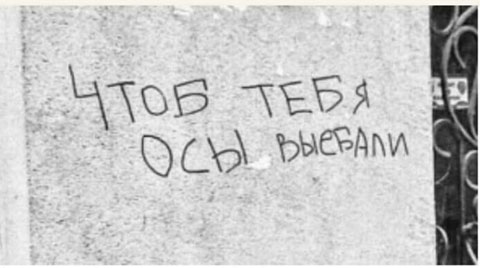 ЧТОБ ТЕБЯ
ОСЫ ВЫЕБАЛИ